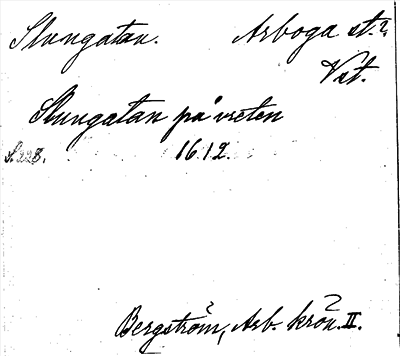 Slungatan. Arboga st.
Vst.
Slungatan på vreten
S. 228. 1612.
Bergström, Arb. krön. II.